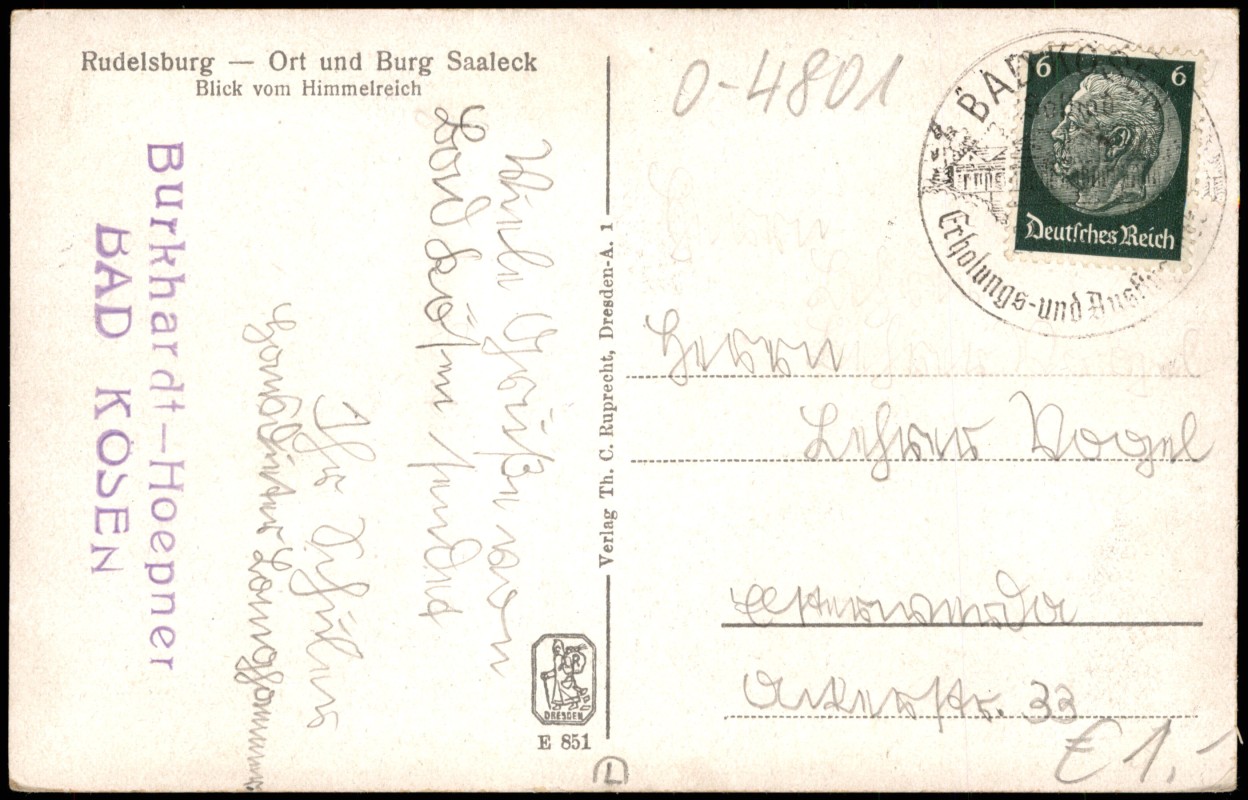 Rudelsburg — Ort und Burg Saaleck
Blick vom Himmelreich
Burkhardt-Hoepner
BAD KÖSEN
Viele Grüße von
Bad Kösen sendet
Ihr Schüler
Verlag Th. C. Ruprecht, Dresden-A. 1
DRESDEN
E 851
L
0-4801
BAD KÖSEN
Erholungs-und Ausflu
6 6
Deutsches Reich
Herrn
Lehrer Vogel
Elsterwerda
Ackerstr. 33
€ 1.-